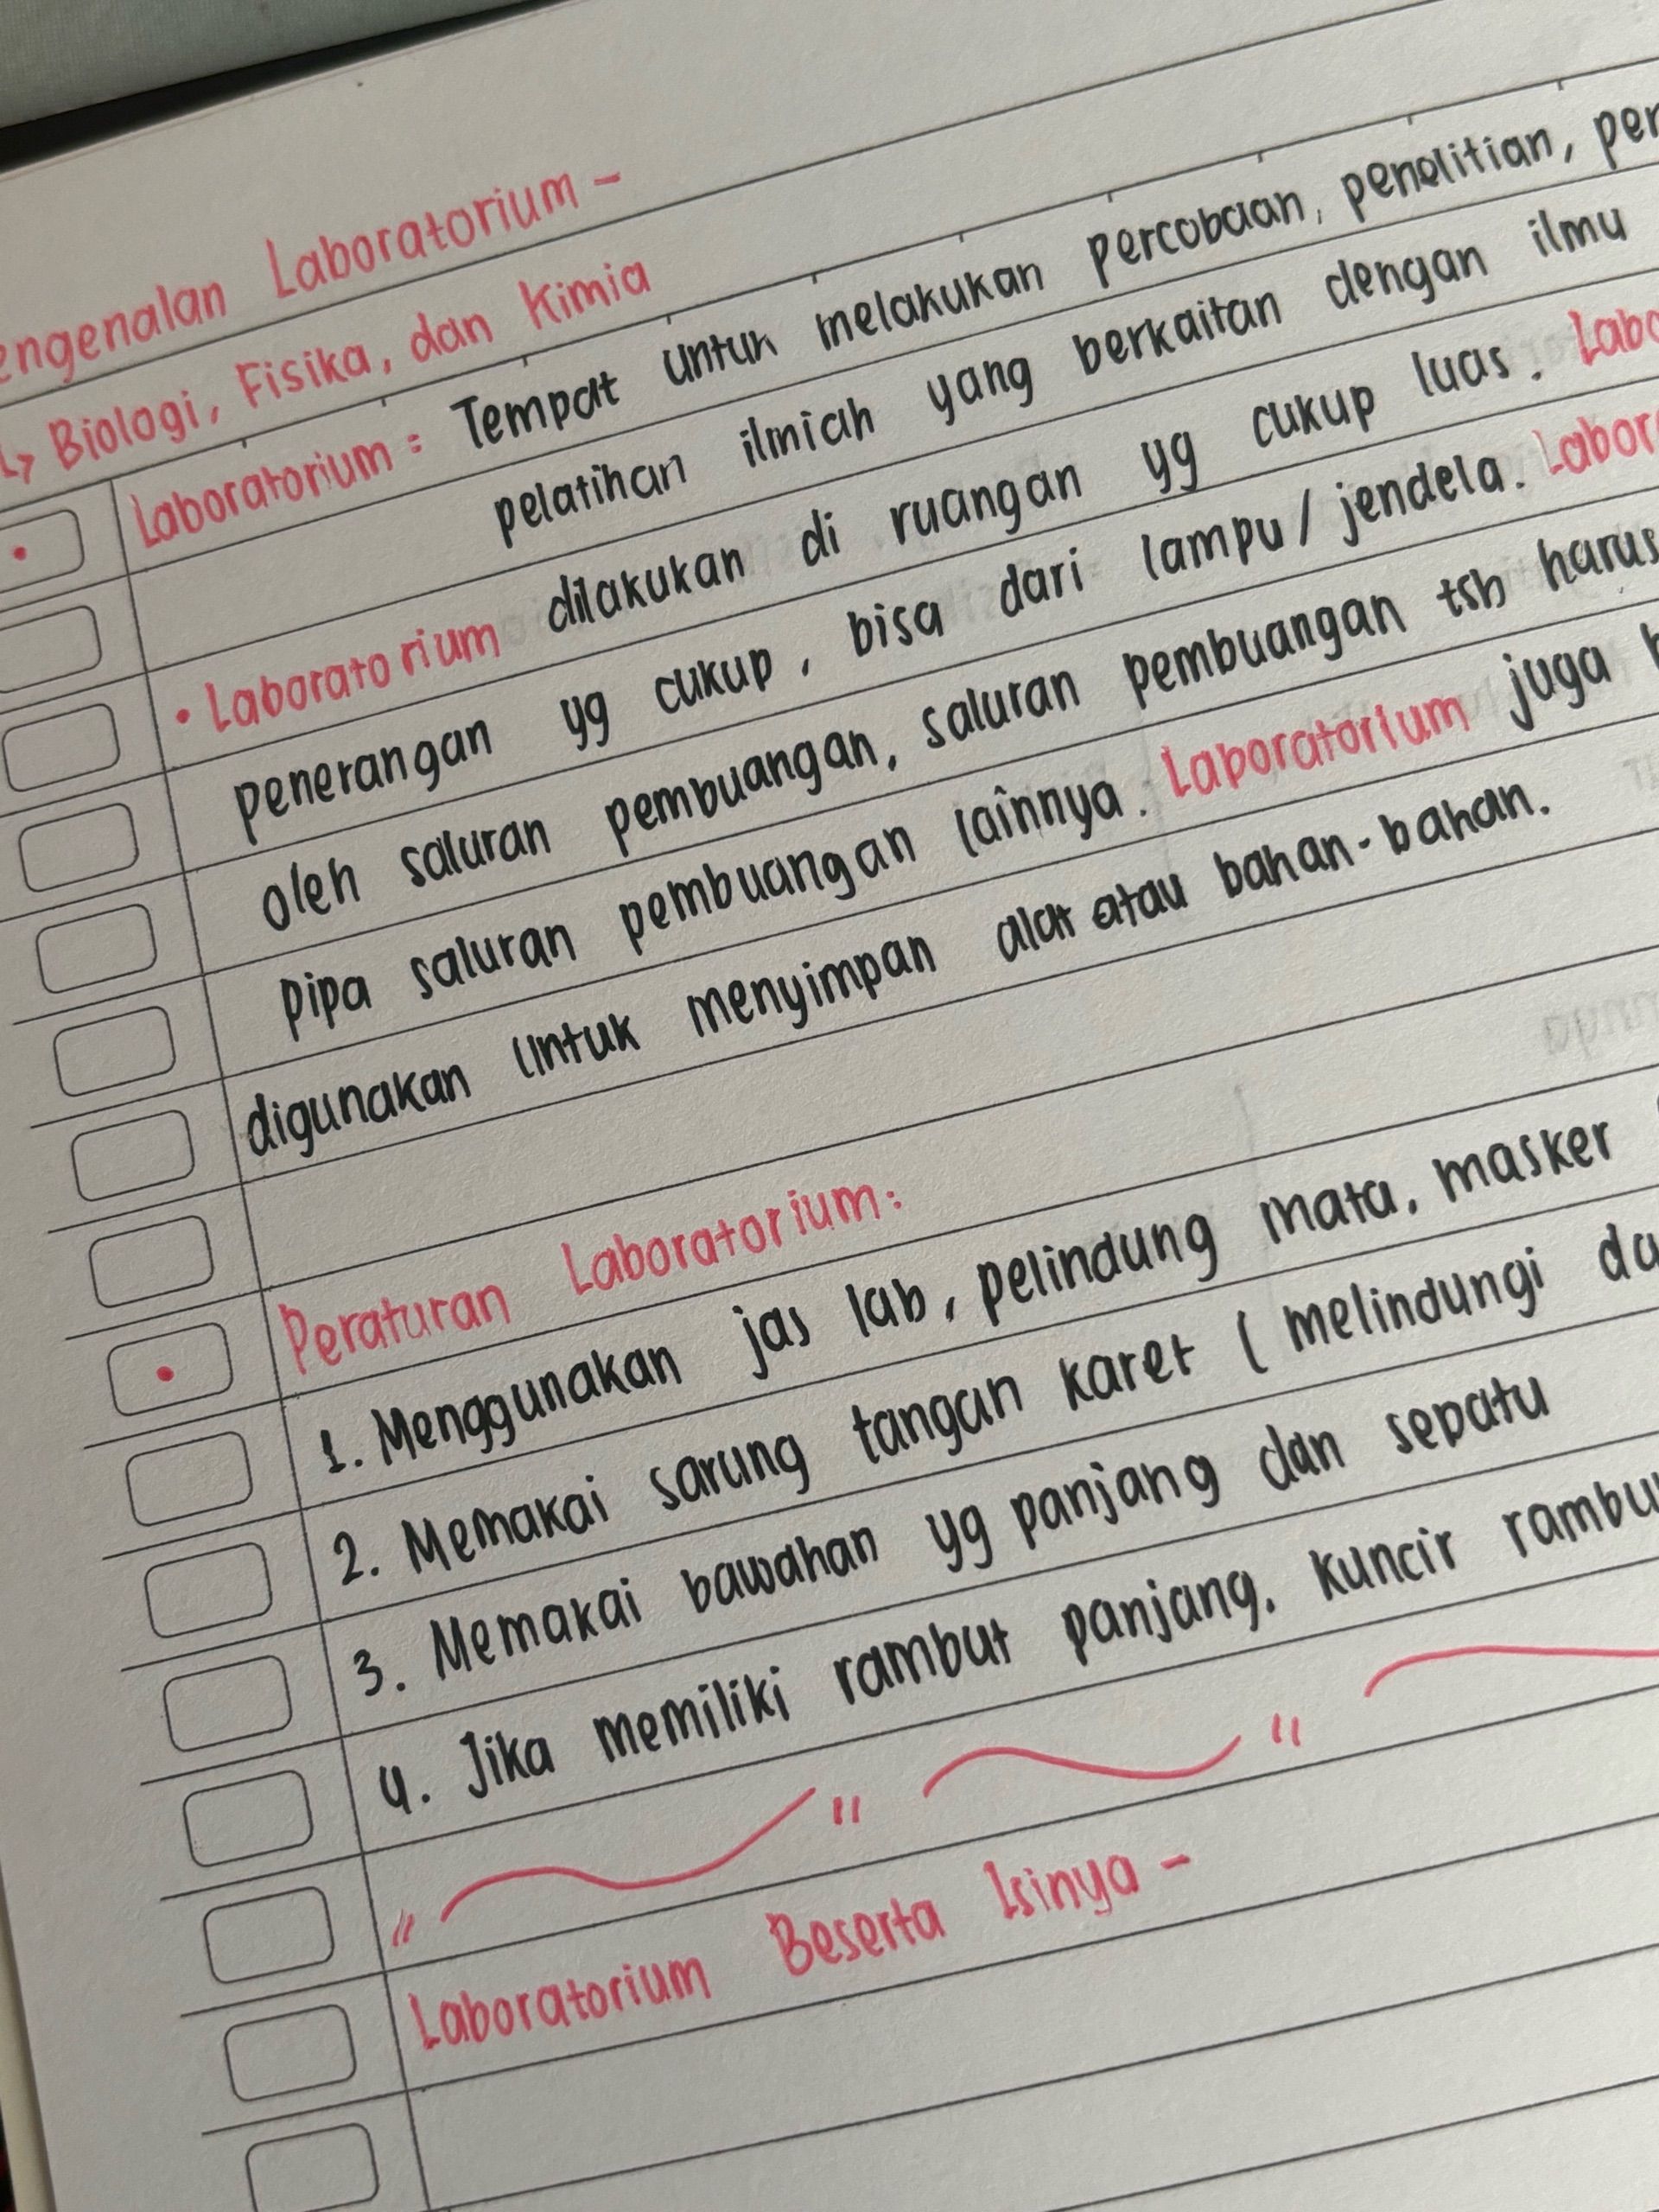 engenalan Laboratorium -
↳ Biologi, Fisika, dan Kimia
• Laboratorium = Tempat untuk melakukan percobaan, penelitian, pen
pelatihan ilmiah yang berkaitan dengan ilmu
• Laboratorium dilakukan di ruangan yg cukup luas. Labo
penerangan yg cukup, bisa dari lampu / jendela. Labor
oleh saluran pembuangan, saluran pembuangan tsb harus
pipa saluran pembuangan lainnya. Laboratorium juga
digunakan untuk menyimpan alat atau bahan-bahan.
• Peraturan Laboratorium:
1. Menggunakan jas lab, pelindung mata, masker
2. Memakai sarung tangan karet ( melindungi da
3. Memakai bawahan yg panjang dan sepatu
4. Jika memiliki rambut panjang, kuncir rambu
Laboratorium Beserta Isinya -